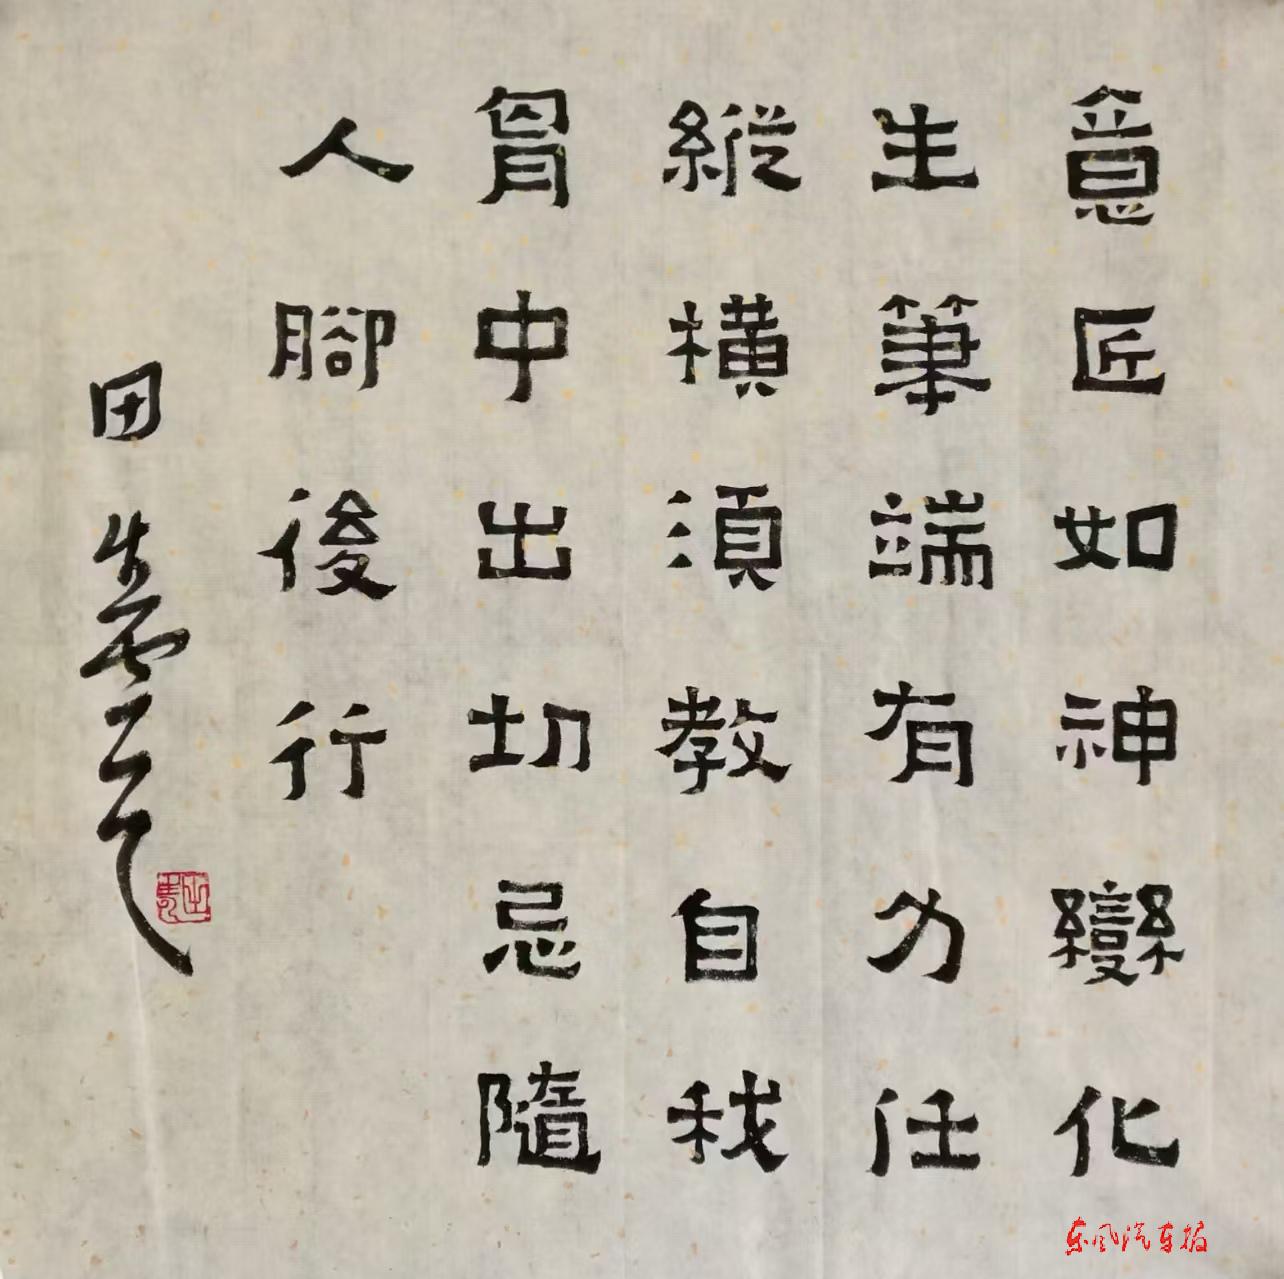 意匠如神變化
生筆端有力任
縱橫須教自我
胷中出切忌隨
人腳後行
田
东风汽车报